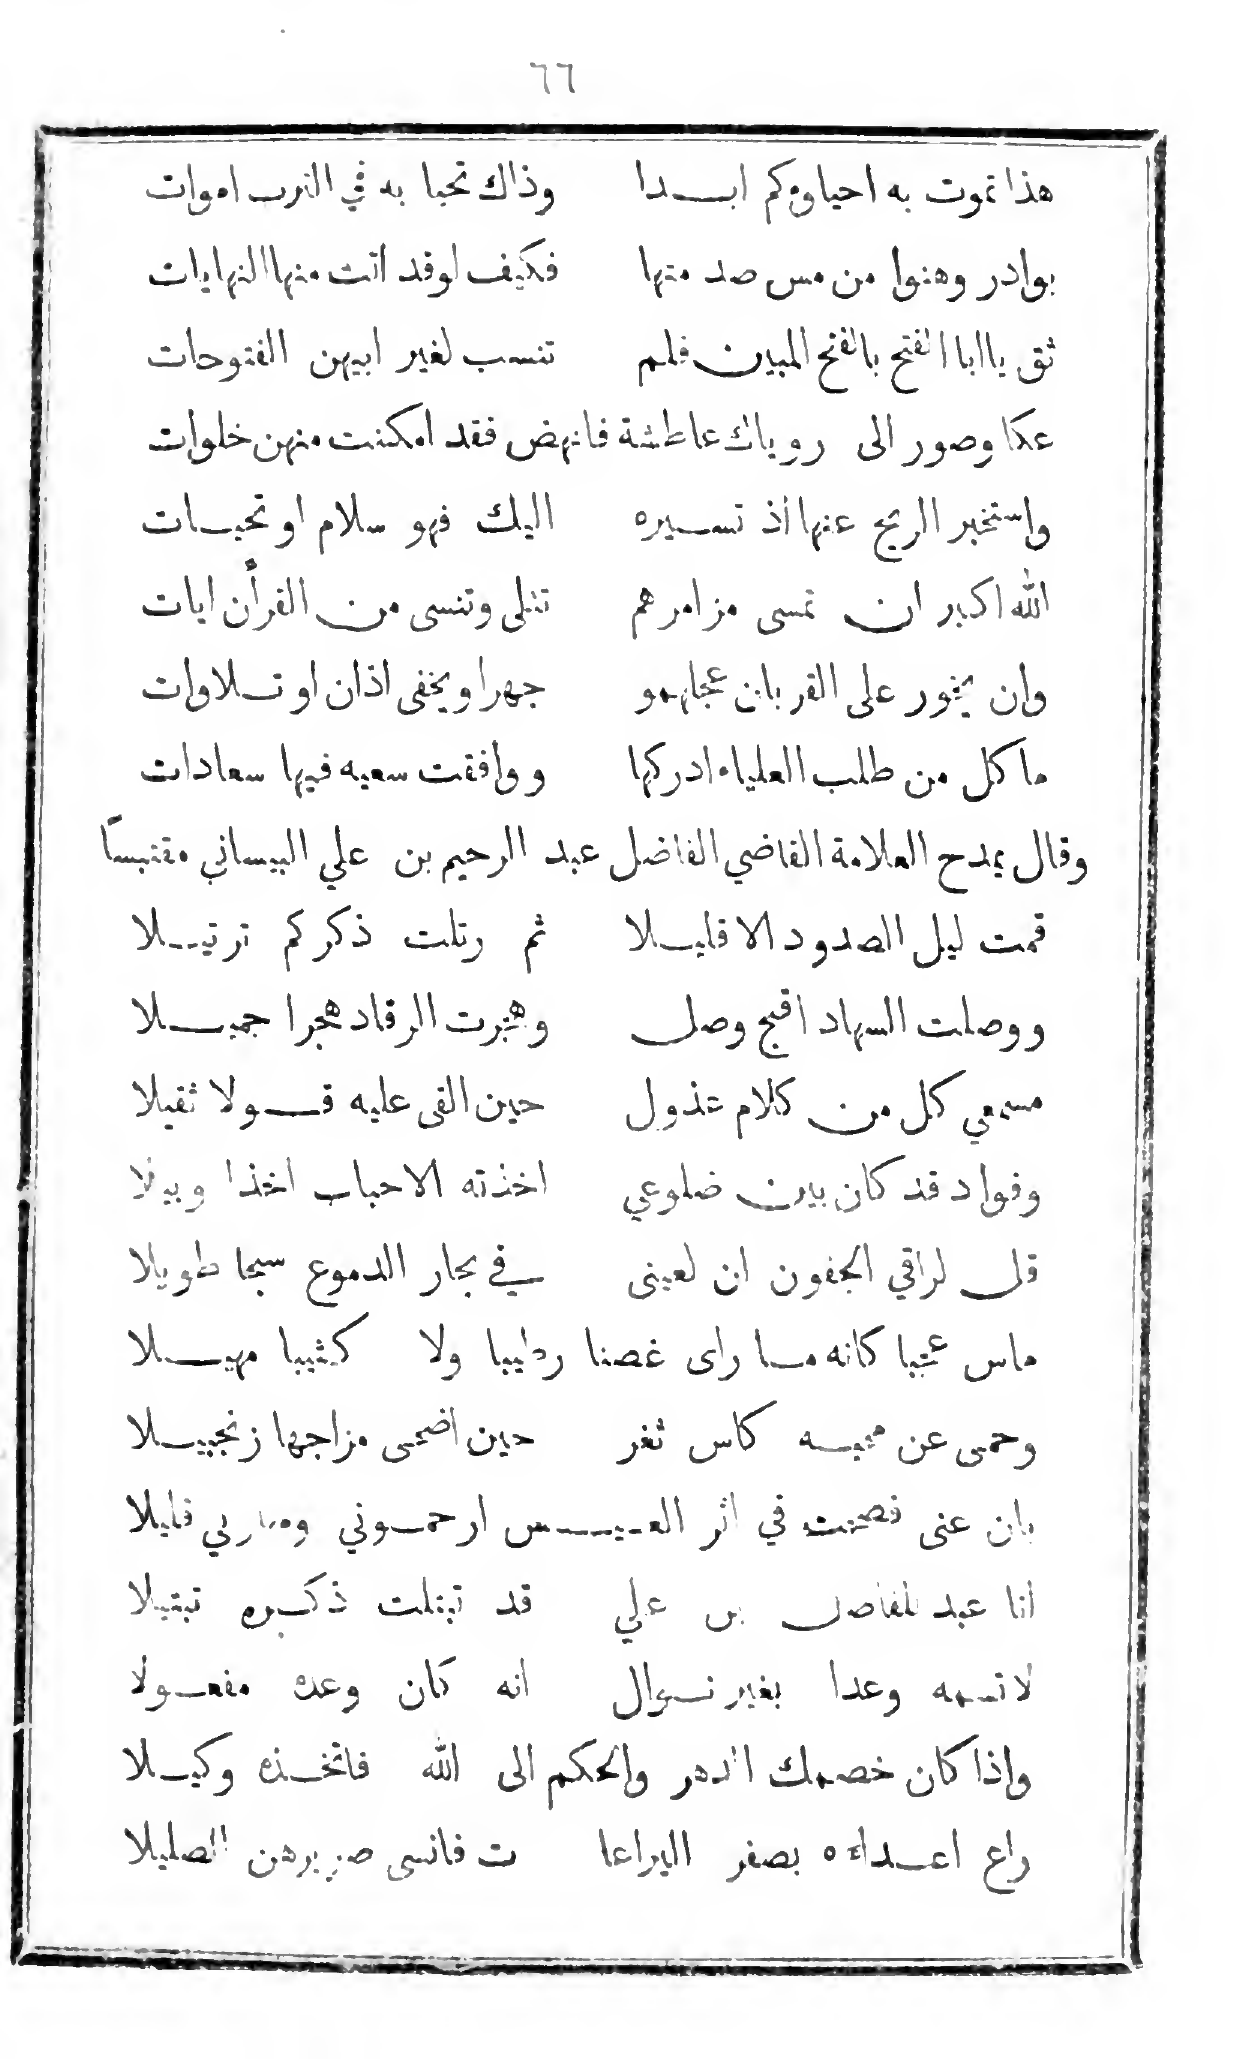 ٦٦
هذا تموت به احياوءكم ابـــدا وذاك تحيا به في الترب اموات
بوادر وهنوا من مس صد منها فكيف لو قد اتت منها النهايات
ثق يا ابا الفتح بالفتح المبين فلم تنسب لغير ابيهن الفتوحات
عكا وصور الى روياك عاطشة فانهض فقد امكنت منهن خلوات
واستخبر الريح عنها اذ تســيره اليك فهو سلام او تحيــات
الله اكبر ان تمسى مزامرهم تتلى وتنسى من القرأن ايات
وان يخور على القربان عجلهمو جهرا ويخفى اذان او تــلاوات
ما كل من طلب العلياء ادركها ووافقت سعيه فيها سعادات
وقال يمدح العلامة القاضي الفاضل عبد الرحيم بن علي البيساني مقتبسًا
قمت ليل الصدود الا قليــلا ثم رتلت ذكركم ترتيــلا
ووصلت السهاد اقبح وصل وهجرت الرقاد هجرا جميــلا
مسمعي كل من كلام عذول حين القى عليه قــولا ثقيلا
وفواد قد كان بين ضلوعي اخذته الاحباب اخذا وبيلا
قل لراقي الجفون ان لعينى في بحار الدموع سبحا طويلا
ماس عجبا كانه مــا راى غصنا رطيبا ولا كثيبا مهيــلا
وحمى عن محبــه كاس ثغر حين اضحى مزاجها زنجبيــلا
بان عنى فصحت في اثر العــيــس ارحمــوني ومهلوني قليلا
انا عبد للفاضل بن علي قد تبتلت ذكــره تبتيلا
لا تسمه وعدا بغير نــوال انه كان وعده مفعــولا
واذا كان خصمك الدهر والحكم الى الله فاتخــذه وكيــلا
راع اعــداءه بصفر اليراعا ت فانسى صريرهن الصليلا